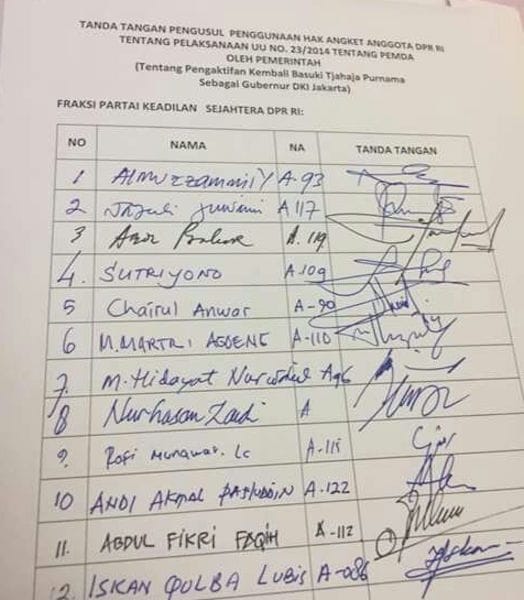 TANDA TANGAN PENGUSUL PENGGUNAAN HAK ANGKET ANGGOTA DPR RI
TENTANG PELAKSANAAN UU NO. 23/2014 TENTANG PEMDA
OLEH PEMERINTAH
(Tentang Pengaktifan Kembali Basuki Tjahaja Purnama
Sebagai Gubernur DKI Jakarta)
FRAKSI PARTAI KEADILAN SEJAHTERA DPR RI:
NO NAMA NA TANDA TANGAN
1 ALMUZZAMMIL Y A-93
2 Jazuli Juwaini A 117
3 A. 119
4. SUTRIYONO A.109
5 Chairul Anwar A-90
6 M. MARTRI AGOENG A-110
7. M. Hidayat A96
8 Nurhasan Zaidi A
9. Rofi Munawar. Lc A-115
10 ANDI AKMAL PASLUDDIN A.122
11. ABDUL FIKRI FAQIH A-112
12. ISKAN QULBA LUBIS A-086